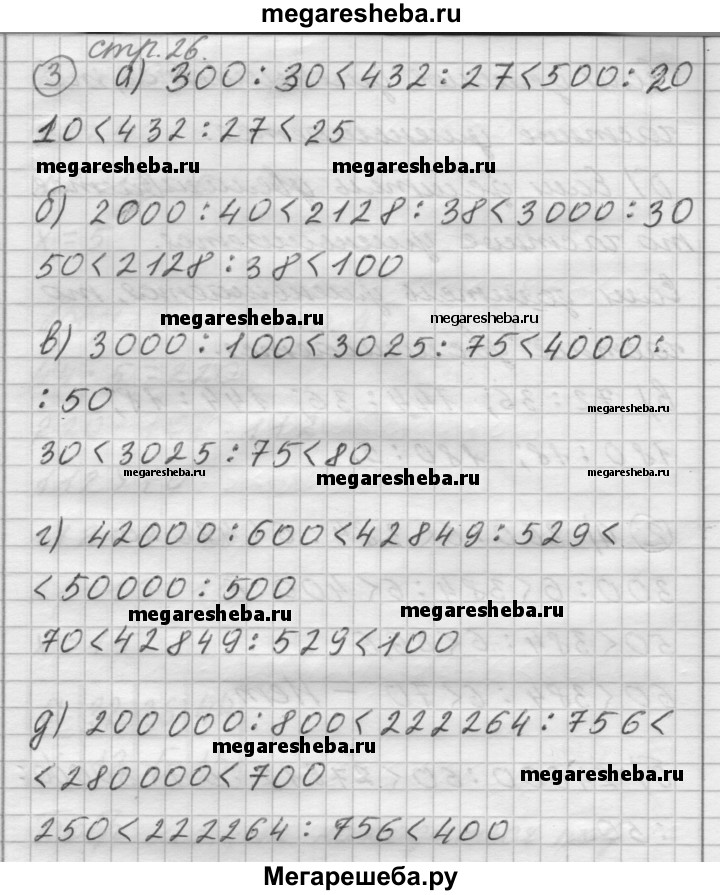 megaresheba.ru
стр.26.
3 а) 300 : 30 < 432 : 27 < 500 : 20
10 < 432 : 27 < 25
megaresheba.ru megaresheba.ru
б) 2000 : 40 < 2128 : 38 < 3000 : 30
50 < 2128 : 38 < 100
megaresheba.ru megaresheba.ru
в) 3000 : 100 < 3025 : 75 < 4000 :
: 50
megaresheba.ru
30 < 3025 : 75 < 80
megaresheba.ru megaresheba.ru megaresheba.ru
г) 42000 : 600 < 42849 : 529 <
< 50000 : 500
megaresheba.ru megaresheba.ru
70 < 42849 : 529 < 100
д) 200 000 : 800 < 222264 : 756 <
megaresheba.ru
< 280000 < 700
megaresheba.ru
250 < 222264 : 756 < 400
Мегарешеба.ру